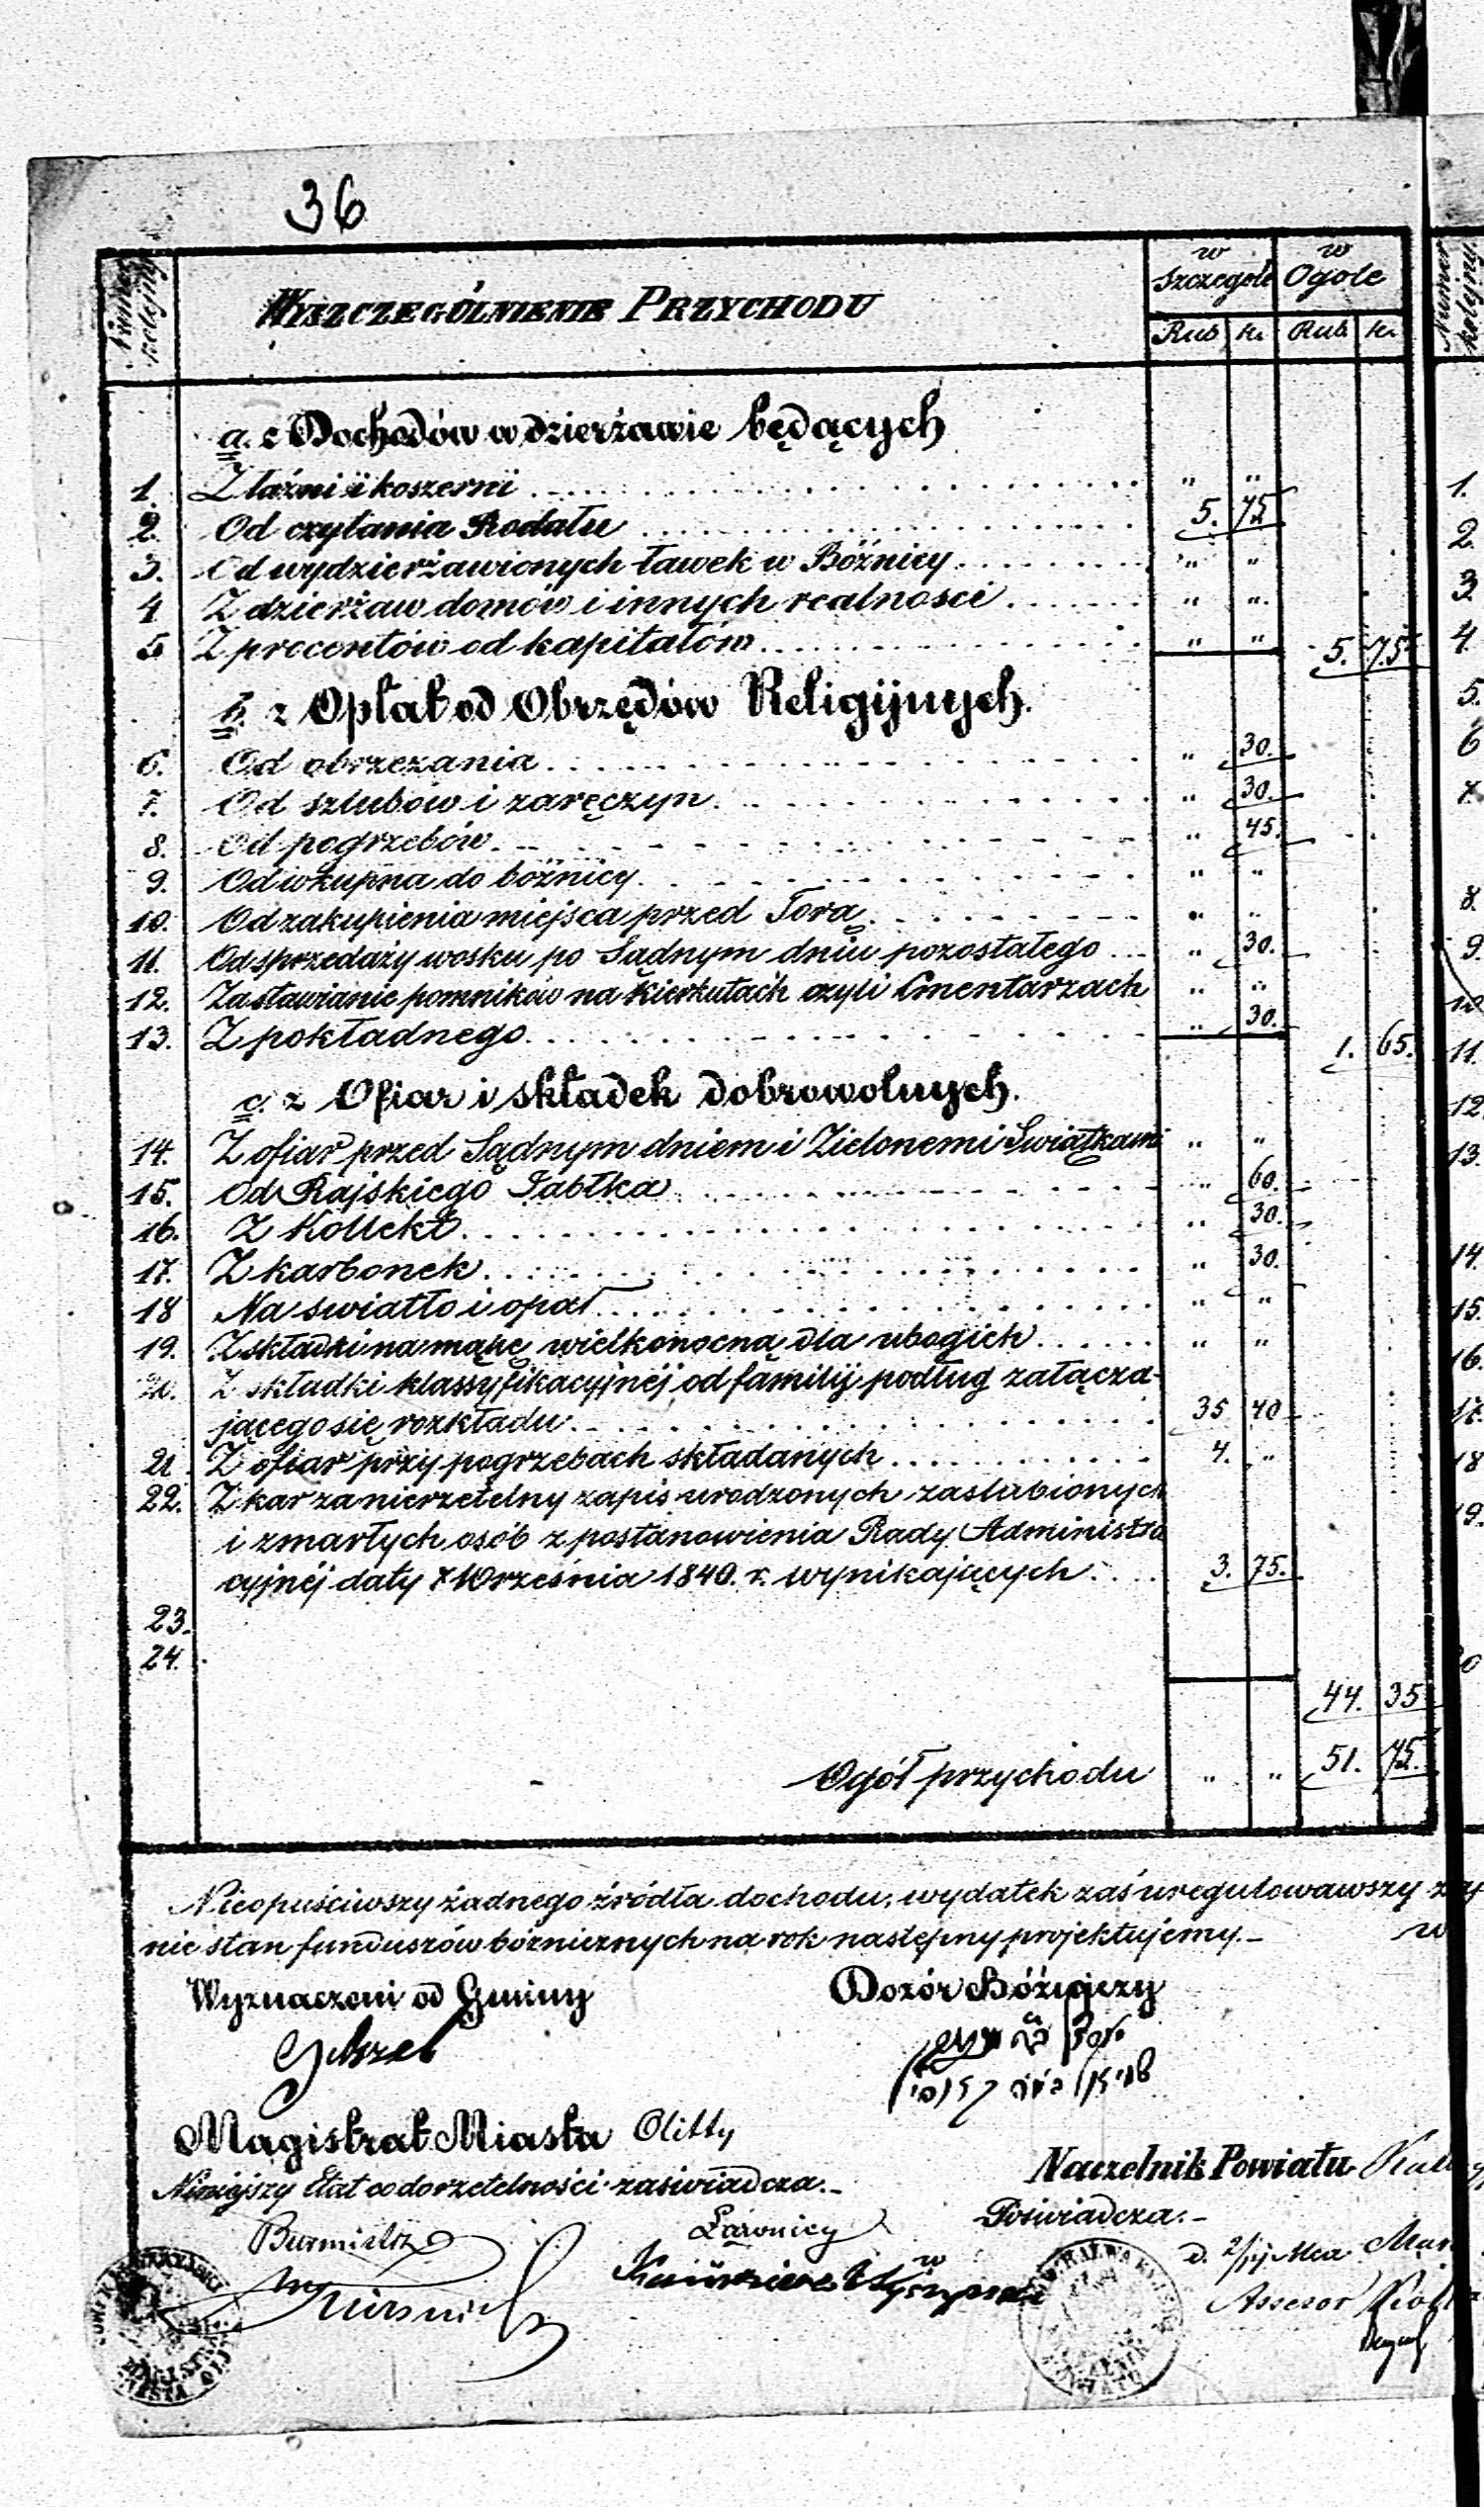 36
Numer kolejny
WYSZCZEGÓLNIENIE PRZYCHODU
w Szczególe
w Ogóle
Rub. k. Rub. k.
a. z Dochodów w dzierżawie będących
1. Z łaźni i koszerni . . . " "
2. Od czytania Rodału . . . 5. 75
3. Od wydzierżawionych ławek w Bóżnicy . . . " "
4 Z dzierżaw domów i innych realności . . . " "
5 Z procentów od kapitałów . . . " " 5. 75
b. z Opłat od Obrzędów Religijnych.
6. Od obrzezania . . . " 30.
7. Od szlubów i zaręczyn . . . " 30.
8. Od pogrzebów . . . " 45.
9. Od wkupna do bóżnicy . . . " "
10. Od zakupienia miejsca przed Torą . . . " "
11. Od sprzedaży wosku po Sądnym dniu pozostałego . . . " 30.
12. Za stawianie pomników na Kierkutach czyli Cmentarzach " "
13. Z pokładnego . . . " 30. 1. 65.
c. z Ofiar i składek dobrowolnych.
14. Z ofiar przed Sądnym dniem i Zielonemi Swiątkami " "
15. Od Rajskiego Jabłka . . . " 60.
16. Z Kollekt . . . " 30.
17. Z karbonek . . . " 30.
18 Na swiatło i opał . . . " "
19. Z składki na mąkę wielkonocną dla ubogich . . . " "
20. Z składki klassyfikacyjnéj od familij podług załącza-
jącego się rozkładu . . . 35 40
21 Z ofiar przy pogrzebach składanych . . . 4. "
22. Z kar za nierzetelny zapis urodzonych zaslubionych
i zmarłych osób z postanowienia Rady Administra
cyjnéj daty 7 Września 1840. r. wynikających . . . 3. 75.
23.
24.
44. 35
Ogół przychodu " " 51. 75.
Nieopuściwszy żadnego źródła dochodu, wydatek zaś uregulowawszy
nie stan funduszów bóżnicznych na rok następny projektujemy.
Wyznaczeni od Gminy
Dozór Bóżniczy
Magistrat Miasta Olitty
Niniejszy Etat co do rzetelności zaświadcza.
Naczelnik Powiatu
Poświadcza.
Burmistrz
Ławnicy
Assesor